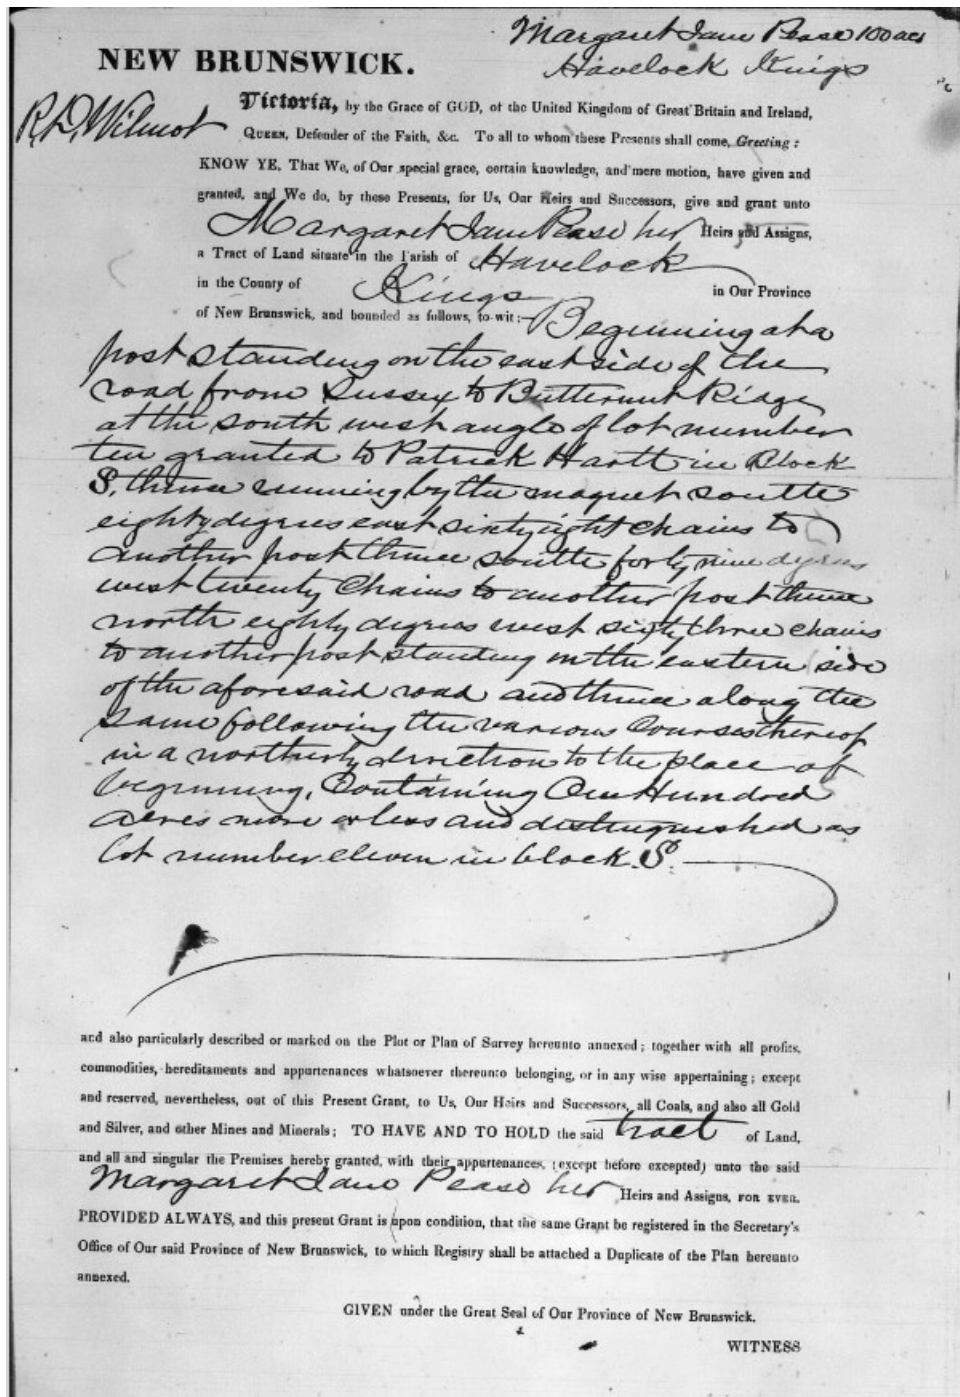 Margaret Jane Pease 100 acs
Havelock Kings
NEW BRUNSWICK.
R.D. Wilmot
Victoria, by the Grace of GOD, of the United Kingdom of Great Britain and Ireland,
QUEEN, Defender of the Faith, &c. To all to whom these Presents shall come, Greeting:
KNOW YE, That We, of Our special grace, certain knowledge, and mere motion, have given and
granted, and We do, by these Presents, for Us, Our Heirs and Successors, give and grant unto
Margaret Jane Pease her Heirs and Assigns,
a Tract of Land situate in the Parish of Havelock
in the County of Kings in Our Province
of New Brunswick, and bounded as follows, to-wit:— Beginning at a
post standing on the east side of the
road from Sussex to Butternut Ridge
at the south west angle of lot number
ten granted to Patrick Hartt in Block
S. thence running by the magnet south
eighty degrees east sixty eight chains to
another post thence south forty nine degrees
west twenty chains to another post thence
north eighty degrees west sixty three chains
to another post standing on the eastern side
of the aforesaid road and thence along the
same following the various courses thereof
in a northerly direction to the place of
beginning. Containing One Hundred
acres more or less and distinguished as
lot number eleven in block S.
and also particularly described or marked on the Plot or Plan of Survey hereunto annexed; together with all profits,
commodities, hereditaments and appurtenances whatsoever thereunto belonging, or in any wise appertaining; except
and reserved, nevertheless, out of this Present Grant, to Us, Our Heirs and Successors, all Coals, and also all Gold
and Silver, and other Mines and Minerals; TO HAVE AND TO HOLD the said tract of Land,
and all and singular the Premises hereby granted, with their appurtenances, (except before excepted) unto the said
Margaret Jane Pease her Heirs and Assigns, FOR EVER.
PROVIDED ALWAYS, and this present Grant is upon condition, that the same Grant be registered in the Secretary's
Office of Our said Province of New Brunswick, to which Registry shall be attached a Duplicate of the Plan hereunto
annexed.
GIVEN under the Great Seal of Our Province of New Brunswick.
WITNESS